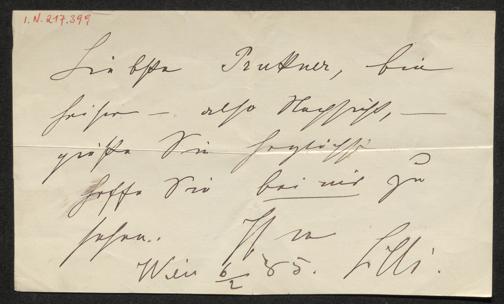 I.N. 217.399
Liebste Pruttner, bin
heiser – also Nachsicht, –
grüße Sie herzlichst
hoffe Sie bei mir zu
sehen. Ihre
Lilli.
Wien 6/2 85.